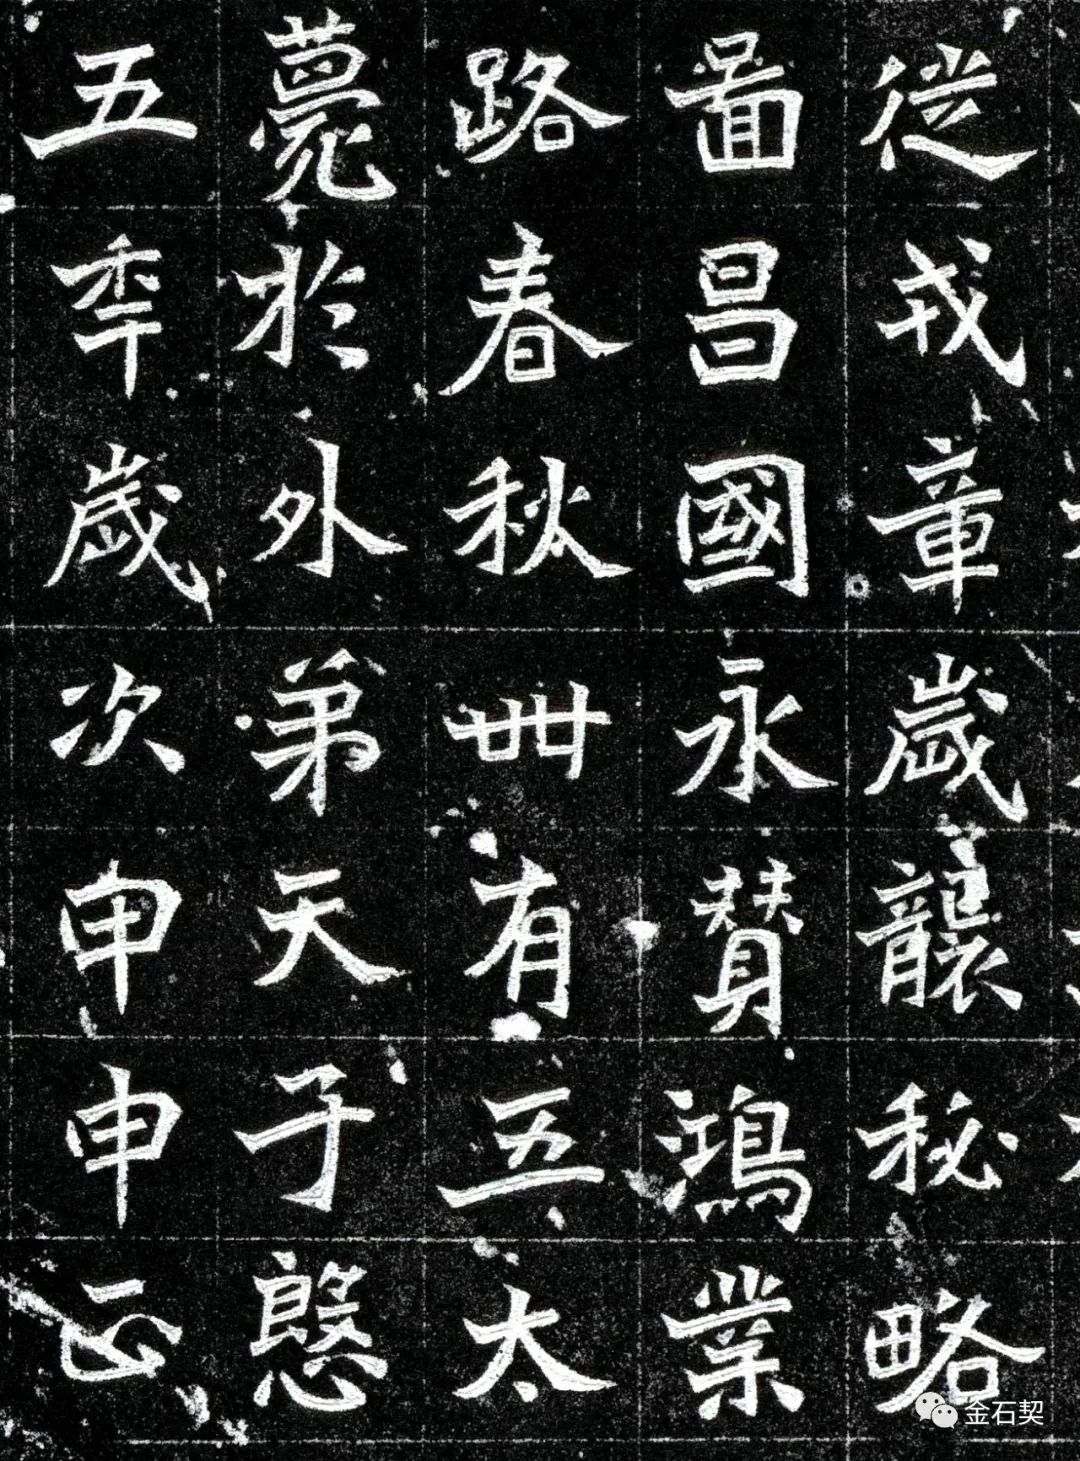 從戎章歲襲秘略
啚昌國永賛鴻業
路春秋卌有五太
薨於外弟天子慇
五年歲次申申正
金石契